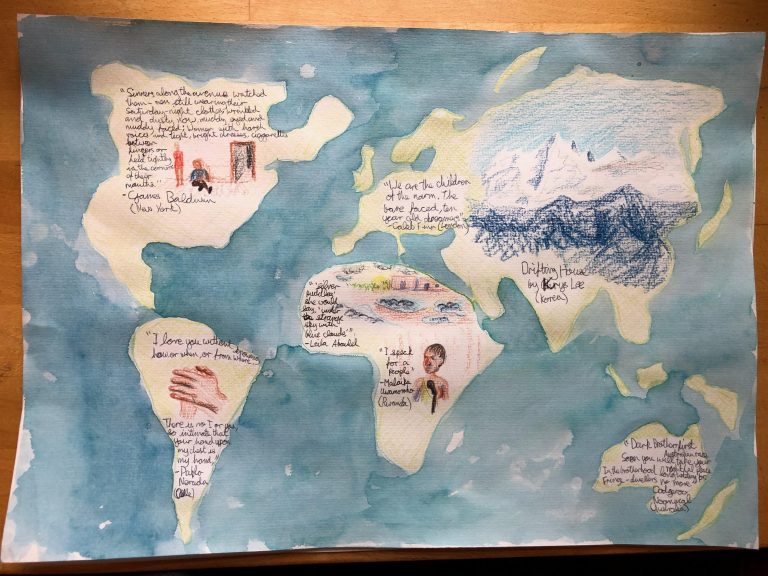 "Sinners along the avenue watched
them - men still wearing their
Saturday-night clothes, wrinkled
and dusty now, muddy eyed and
muddy faced; women with harsh
voices and tight, bright dresses, cigarettes
between
fingers or
held tightly
in the corners
of their
mouths."
- James Baldwin
(New York)
"We are the children
of the norm. The
bare faced, ten
year old dreamers"
- Caleb (London)
Drifting House
by Krys Lee
(Korea)
"'silver
puddles'
she would
say, 'under
the strange
sky with
blue clouds'"
- Leila Aboulela
"I speak
for a
people"
- Malaika
Uwamahoro
(Rwanda)
"I love you without knowing
how or when, or from where...
There is no I or you
so intimate that
your hand upon
my chest is
my hand"
- Pablo
Neruda
(Chile)
"Dark brother, first
Australian race,
Soon you will take your
rightful place
In the brotherhood long waited for,
Fringe-dwellers no more"
Oodgeroo
Noonuccal
(Australia)